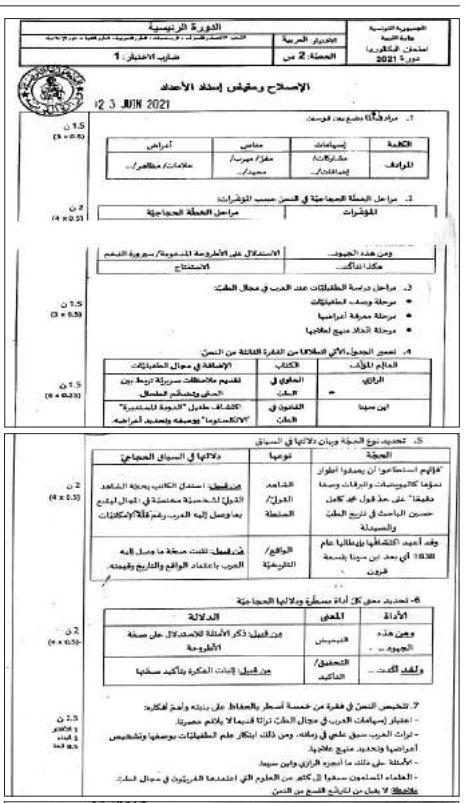 الجمهورية التونسية
وزارة التربية
امتحان البكالوريا
دورة 2021
الدورة الرئيسية
الاختبار: العربية
الحصة: 2 س
ضارب الاختبار: 1
الإصلاح ومقياس إسناد الأعداد
23 JUIN 2021
1.5 ن
(3 × 0.5)
الكلمة
إسهامات
مناص
أعراض
المرادف
مشاركات/ إضافات/...
مفرّ/ مهرب/ محيد/...
علامات/ مظاهر/...
2 ن
(4 × 0.5)
2. مراحل الخطّة الحجاجيّة في النصّ حسب المؤشّرات:
المؤشّرات
مراحل الخطّة الحجاجيّة
ومن هذه الجهود...
الاستدلال على الأطروحة المدعومة/ سيرورة الدعم
هكذا نتأكّد...
الاستنتاج
1.5 ن
(3 × 0.5)
3. مراحل دراسة الطفيليّات عند العرب في مجال الطبّ:
• مرحلة وصف الطفيليّات
• مرحلة معرفة أعراضها
• مرحلة اتّخاذ منهج لعلاجها
1.5 ن
(6 × 0.25)
4. تعمير الجدول الآتي انطلاقا من الفقرة الثالثة من النصّ:
العالم المؤلّف
الكتاب
الإضافة في مجال الطفيليّات
الرازي
الحاوي في الطبّ
تقديم ملاحظات سريريّة تربط بين الحمّى وتضخّم الطحال.
ابن سينا
القانون في الطبّ
اكتشاف طفيل "الدودة المستديرة" "الانكلستوما" ووصفه وتحديد أعراضه.
5. تحديد نوع الحجّة وبيان دلالتها في السياق
الحجّة
نوعها
دلالتها في السياق الحجاجي
2 ن
(4 × 0.5)
"فإنّهم استطاعوا أن يصفوا أطوار نموّها كالبويضات واليرقات وصفا دقيقا" على حدّ قول محمد كامل حسين الباحث في تاريخ الطبّ والصيدلة
الشاهد القوليّ/ السلطة
من قبيل: استدلّ الكاتب بحجّة الشاهد القوليّ لشخصيّة مختصّة في المجال ليقنع بما وصل إليه العرب رغم قلّة الإمكانيّات
وقد أعيد اكتشافها بإيطاليا عام 1838 أي بعد ابن سينا بتسعة قرون
الواقع/ التاريخيّة
من قبيل: تثبت صحّة ما وصل إليه العرب باعتماد الواقع والتاريخ وقيمته.
6- تحديد معنى كلّ أداة مسطّرة ودلالتها الحجاجيّة
2 ن
(4 × 0.5)
الأداة
المعنى
الدلالة
ومن هذه الجهود...
التبعيض
من قبيل: ذكر الأمثلة للاستدلال على صحّة الأطروحة
ولقد أكّدت...
التحقيق/ التأكيد
من قبيل: إثبات الفكرة بتأكيد صحّتها
2.5 ن
7. تلخيص النصّ في فقرة من خمسة أسطر بالحفاظ على بنيته وأهمّ أفكاره:
- اعتبار إسهامات العرب في مجال الطبّ تراثا قديما لا يلائم عصرنا.
- تراث العرب سبق علمي في زمانه، ومن ذلك ابتكار علم الطفيليّات بوصفها وتشخيص أعراضها وتحديد منهج علاجها.
- الأمثلة على ذلك ما أنجزه الرازي وابن سينا.
- العلماء المسلمون سبقوا إلى كثير من العلوم التي اعتمدها الغربيّون في مجال الطبّ.
ملاحظة: لا يقبل من المترشّح النسخ من النصّ.